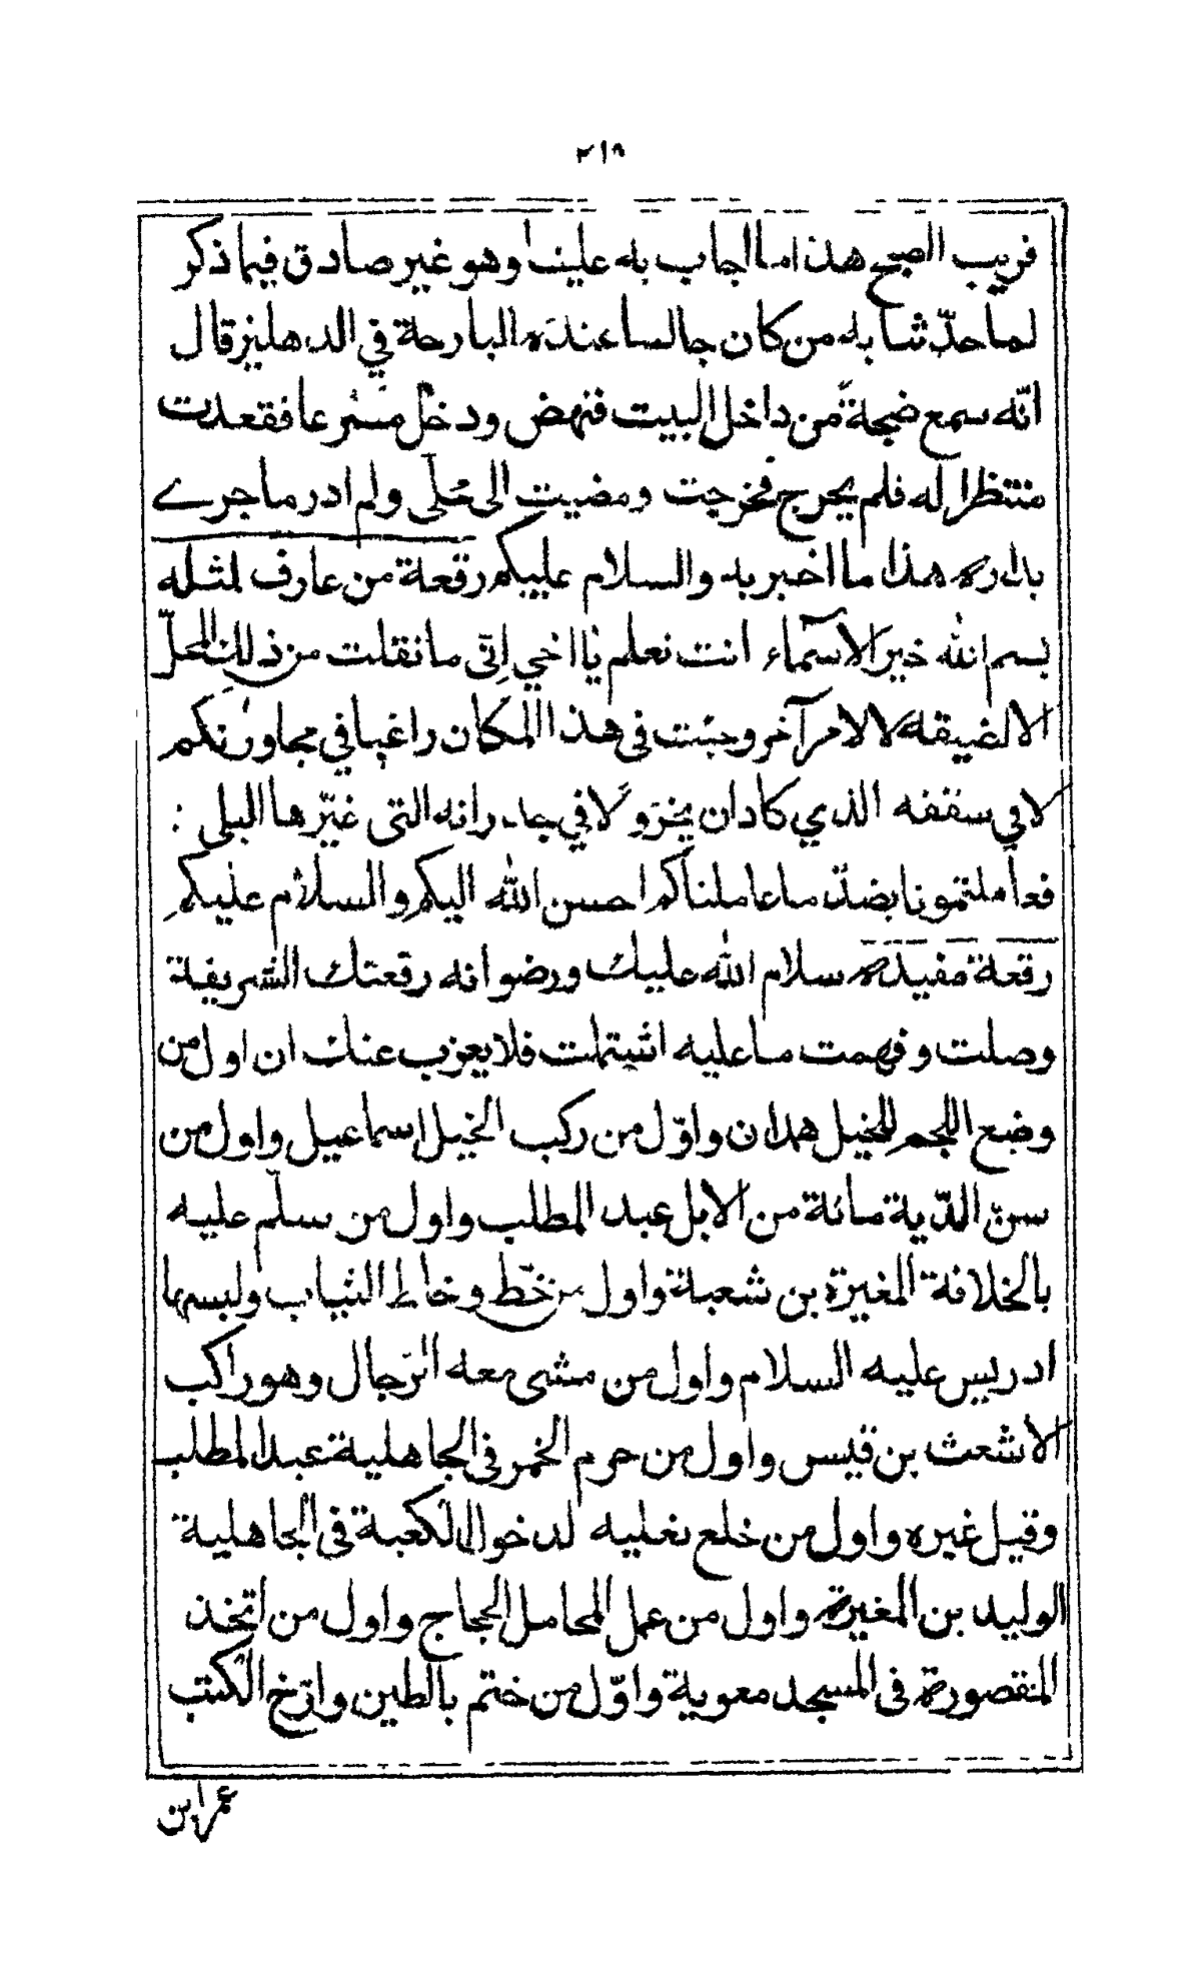 ٢١٨
قريب الصبح هذا ما اجاب به علينا وهو غير صادق فيما ذكر
لما حدّثنا به من كان جالسا عنده البارحة في الدهليز قال
انّه سمع ضجة من داخل البيت فنهض ودخل مسرعا فقعدت
منتظرا له فلم يخرج فخرجت ومضيت الى محلّى ولم ادر ما جرے
بداره هذا ما اخبر به والسلام عليكم رقعة من عارف لمثله
بسم الله خير الاسماء انت تعلم يا اخي اِنّى ما نقلت من ذلك المحلّ
الا لضيقه لا لامر آخر وجئت فى هذا المكان راغبا في مجاورتكم
لا في سقفه الذي كاد ان يخرّ ولا في جدرانه التى غيّرها البلى :
فعاملتمونا بضدّ ما عاملناكم احسن الله اليكم والسلام عليكم
رقعة مفيدة سلام الله عليك ورضوانه رقعتك الشريفة
وصلت وفهمت ما عليه اشتملت فلا يعزب عنك ان اول من
وضع اللجم للخيل همدان واوّل من ركب الخيل اسماعيل واول من
سنّ الدّية مائة من الابل عبد المطلب واول من سلّم عليه
بالخلافة المغيرة بن شعبة واول من خطّ وخاط الثياب ولبسها
ادريس عليه السلام واول من مشى معه الرّجال وهو راكب
الاشعث بن قيس واول من حرم الخمر فى الجاهلية عبد المطلب
وقيل غيره واول من خلع نعليه لدخول الكعبة فى الجاهلية
الوليد بن المغيرة واول من عمل المحامل الحجاج واول من اتخذ
المقصورة فى المسجد معوية واوّل من ختم بالطين وارّخ الكتب
عمر ابن